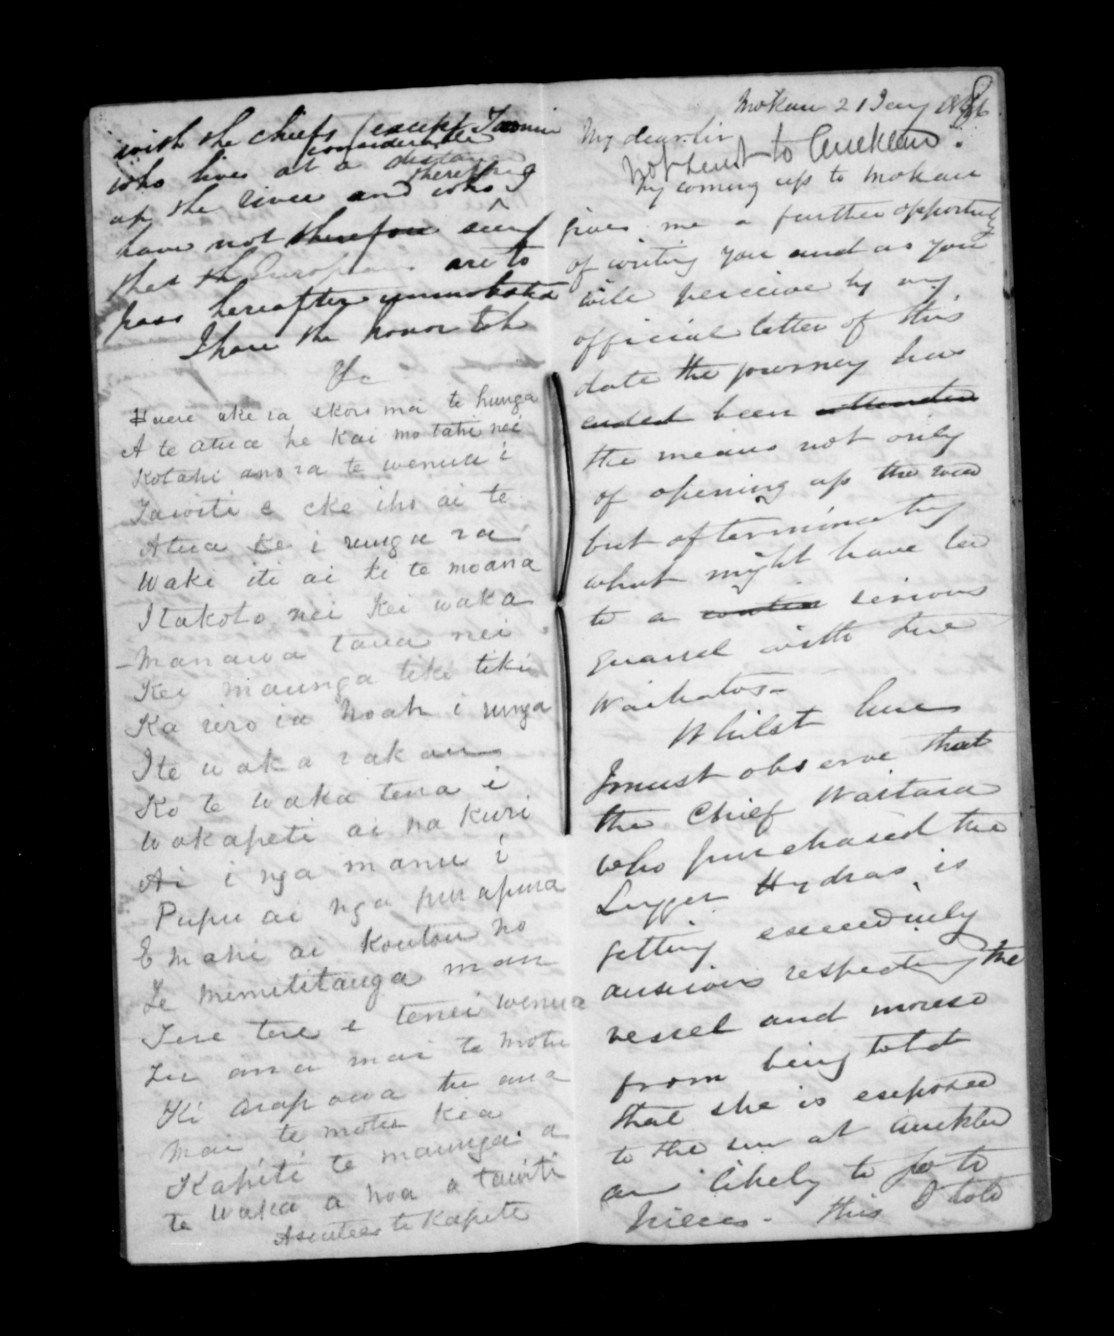 with the chiefs (except Taonui
who lives at a considerable distance
up the river and who I therefore
have not therefore seen)
that the Europeans are to
pass hereafter unmolested
I have the honor to be
&c
A te atua he kai mo tatu nei
Kotahi ano ra te wenua i
Tawiti e eke iho ai te
Atua ke i runga ra
Waka iti ai ki te moana
I takoto nei kei waka
Manawa taua nei
Kei maunga tiki tiki
Ka iro ia hoah i runga
I te waka rakau
Ko te waka tena i
Wakapeti ai na Kuri
Ai i nga manu i
Pupu ai nga purapura
E mahi ai koutou no
Te mimititanga mau
Tere tere e tenei wenua
Tu ana mai te motu
Ki arapaoa tu ana
Mai te motu kia
Kapiti te maunga a
te waka a hoa a tawiti
te Kapiti
Mokau 21 Jany 1846
My dear Sir
Not sent to Auckland.
My coming up to Mokau
gives me a further opportunity
of writing you and as you
will perceive by my
official letter of this
date the journey has
ended been attended
the means not only
of opening up the road
but of terminating
what might have led
to a serious
quarrel with the
Waikatos -
Whilst here
I must observe that
the Chief Waitara
who purchased the
Lugger Hydras is
getting exceedingly
anxious respecting the
vessel and moreso
from being told
that she is exposed
to the sun at Auckland
and likely to go to
pieces - this I told